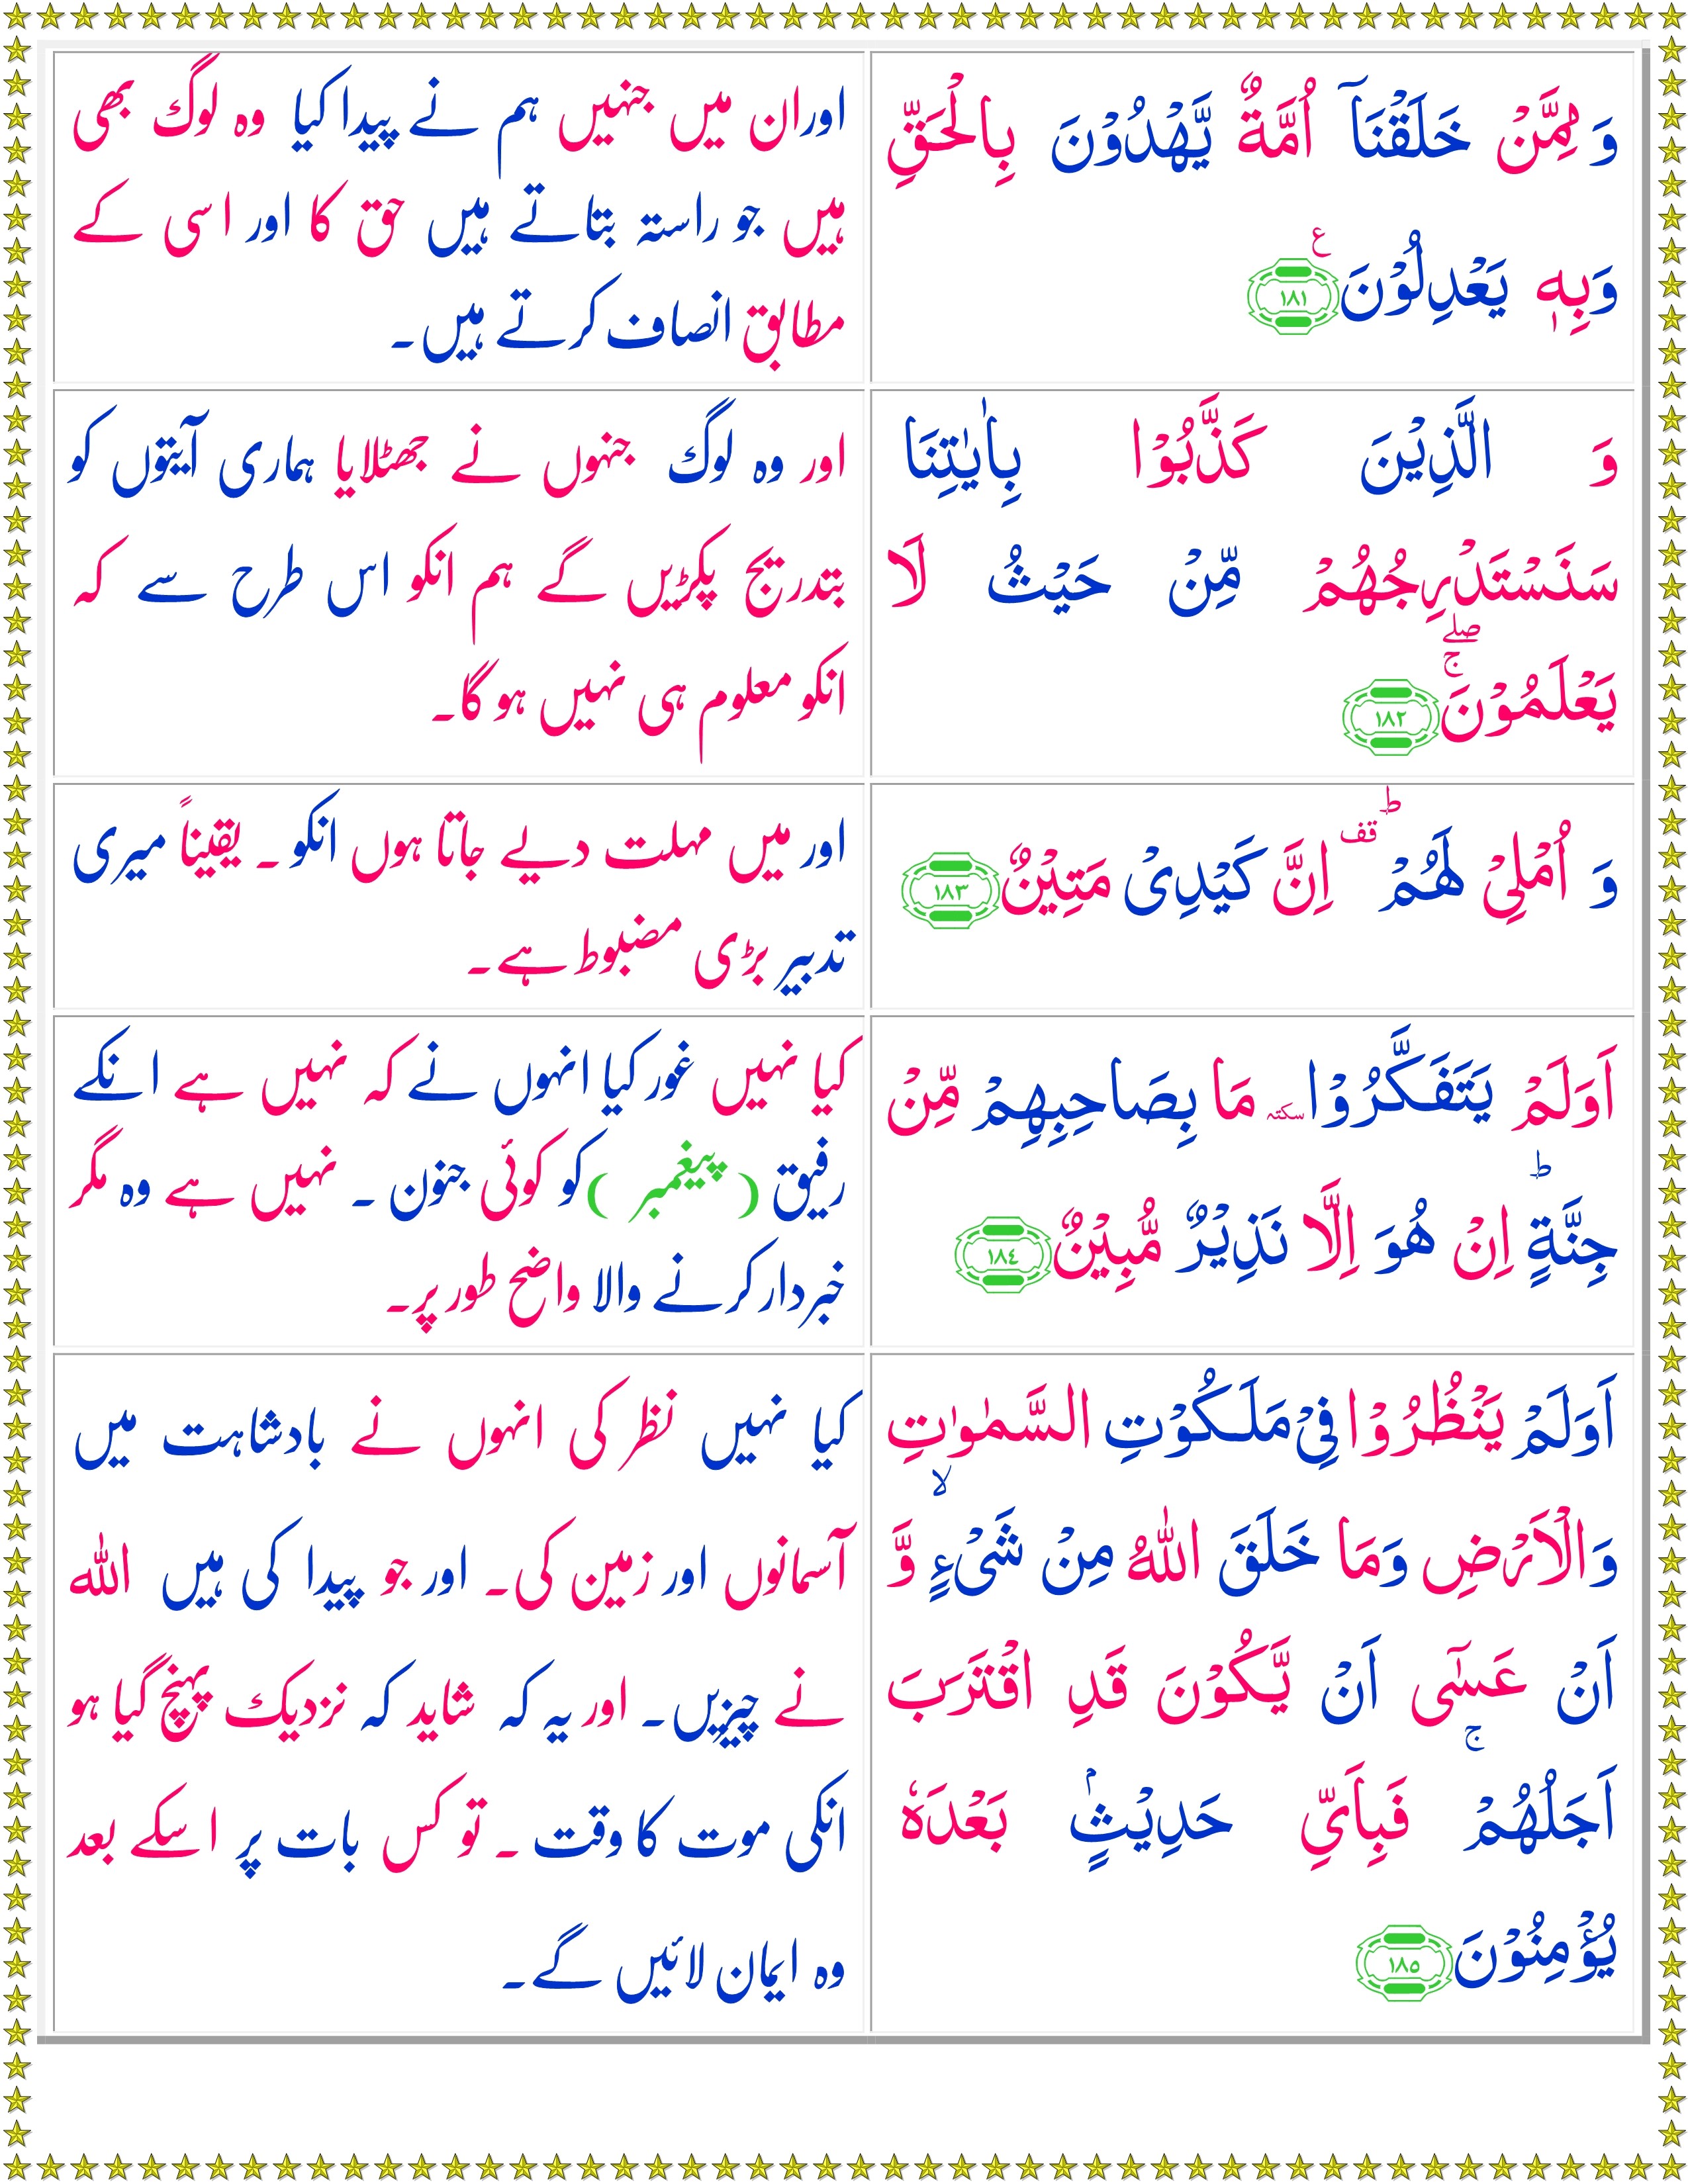 وَ مِمَّنْ خَلَقْنَاۤ اُمَّةٌ يَّهْدُوْنَ بِالْحَقِّ
وَبِهٖ يَعْدِلُوْنَ ع ١٨١
اور ان میں جنہیں ہم نے پیدا کیا وہ لوگ بھی
ہیں جو راستہ بتاتے ہیں حق کا اور اسی کے
مطابق انصاف کرتے ہیں۔
وَ الَّذِيْنَ كَذَّبُوْا بِاٰيٰتِنَا
سَنَسْتَدْرِجُهُمْ مِّنْ حَيْثُ لَا
يَعْلَمُوْنَ ۖۚ ١٨٢
اور وہ لوگ جنہوں نے جھٹلایا ہماری آیتوں کو
بتدریج پکڑیں گے ہم انکو اس طرح سے کہ
انکو معلوم ہی نہیں ہو گا۔
وَ اُمْلِيْ لَهُمْ ؕ قف اِنَّ كَيْدِىْ مَتِيْنٌ ١٨٣
اور میں مہلت دیے جاتا ہوں انکو۔ یقیناً میری
تدبیر بڑی مضبوط ہے۔
اَوَلَمْ يَتَفَكَّرُوْا سكتہ مَا بِصَاحِبِهِمْ مِّنْ
جِنَّةٍ ؕ اِنْ هُوَ اِلَّا نَذِيْرٌ مُّبِيْنٌ ١٨٤
کیا نہیں غور کیا انہوں نے کہ نہیں ہے انکے
رفیق (پیغمبر) کو کوئی جنون۔ نہیں ہے وہ مگر
خبردار کرنے والا واضح طور پر۔
اَوَلَمْ يَنْظُرُوْا فِىْ مَلَكُوْتِ السَّمٰوٰتِ
وَالْاَرْضِ وَمَا خَلَقَ اللّٰهُ مِنْ شَىْءٍ ۙ وَّ
اَنْ عَسٰٓى اَنْ يَّكُوْنَ قَدِ اقْتَرَبَ
اَجَلُهُمْ ۚ فَبِاَىِّ حَدِيْثٍۢ بَعْدَهٗ
يُؤْمِنُوْنَ ١٨٥
کیا نہیں نظر کی انہوں نے بادشاہت میں
آسمانوں اور زمین کی۔ اور جو پیدا کی ہیں اللہ
نے چیزیں۔ اور یہ کہ شاید کہ نزدیک پہنچ گیا ہو
انکی موت کا وقت۔ تو کس بات پر اسکے بعد
وہ ایمان لائیں گے۔